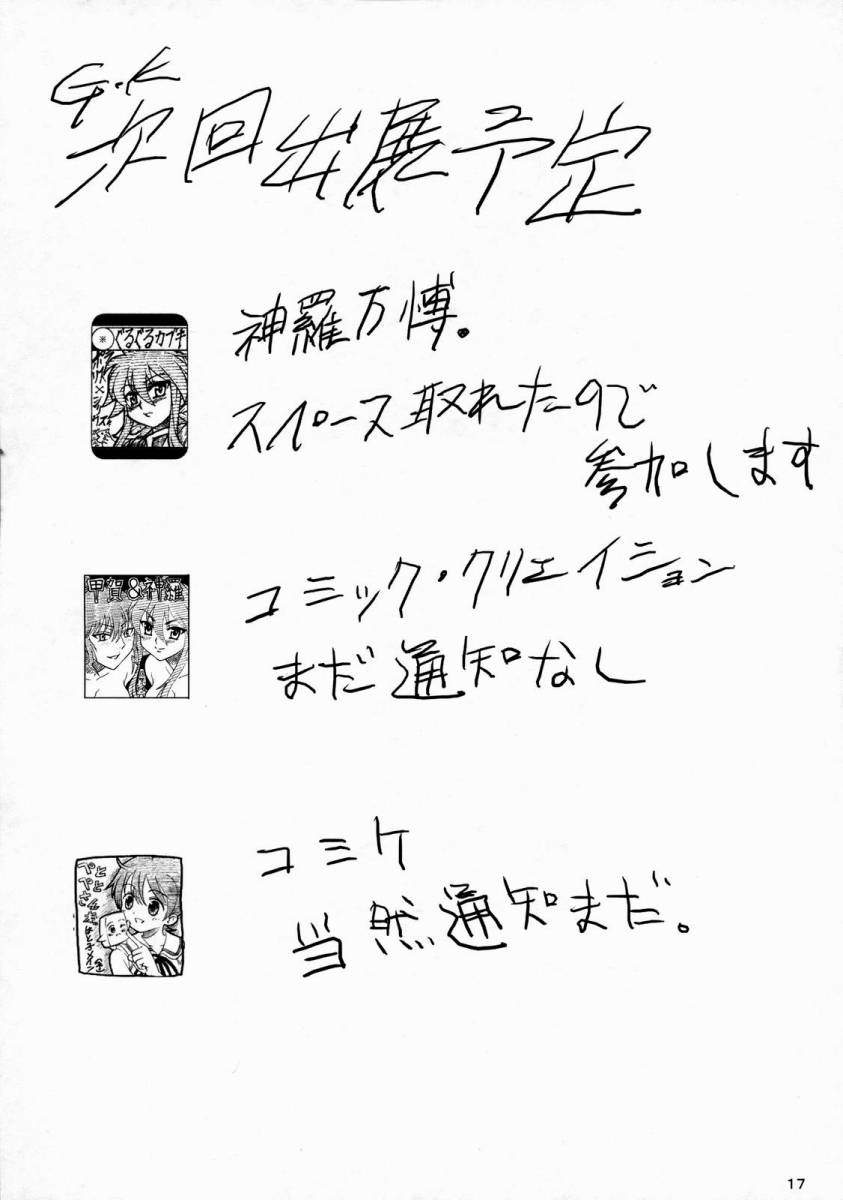 G・K
次回出展予定
※ぐるぐるカブキ
神羅万博。
スペース取れたので
参加します
甲賀&神羅
コミック・クリエイション
まだ通知なし
コミケ
当然通知まだ。
17